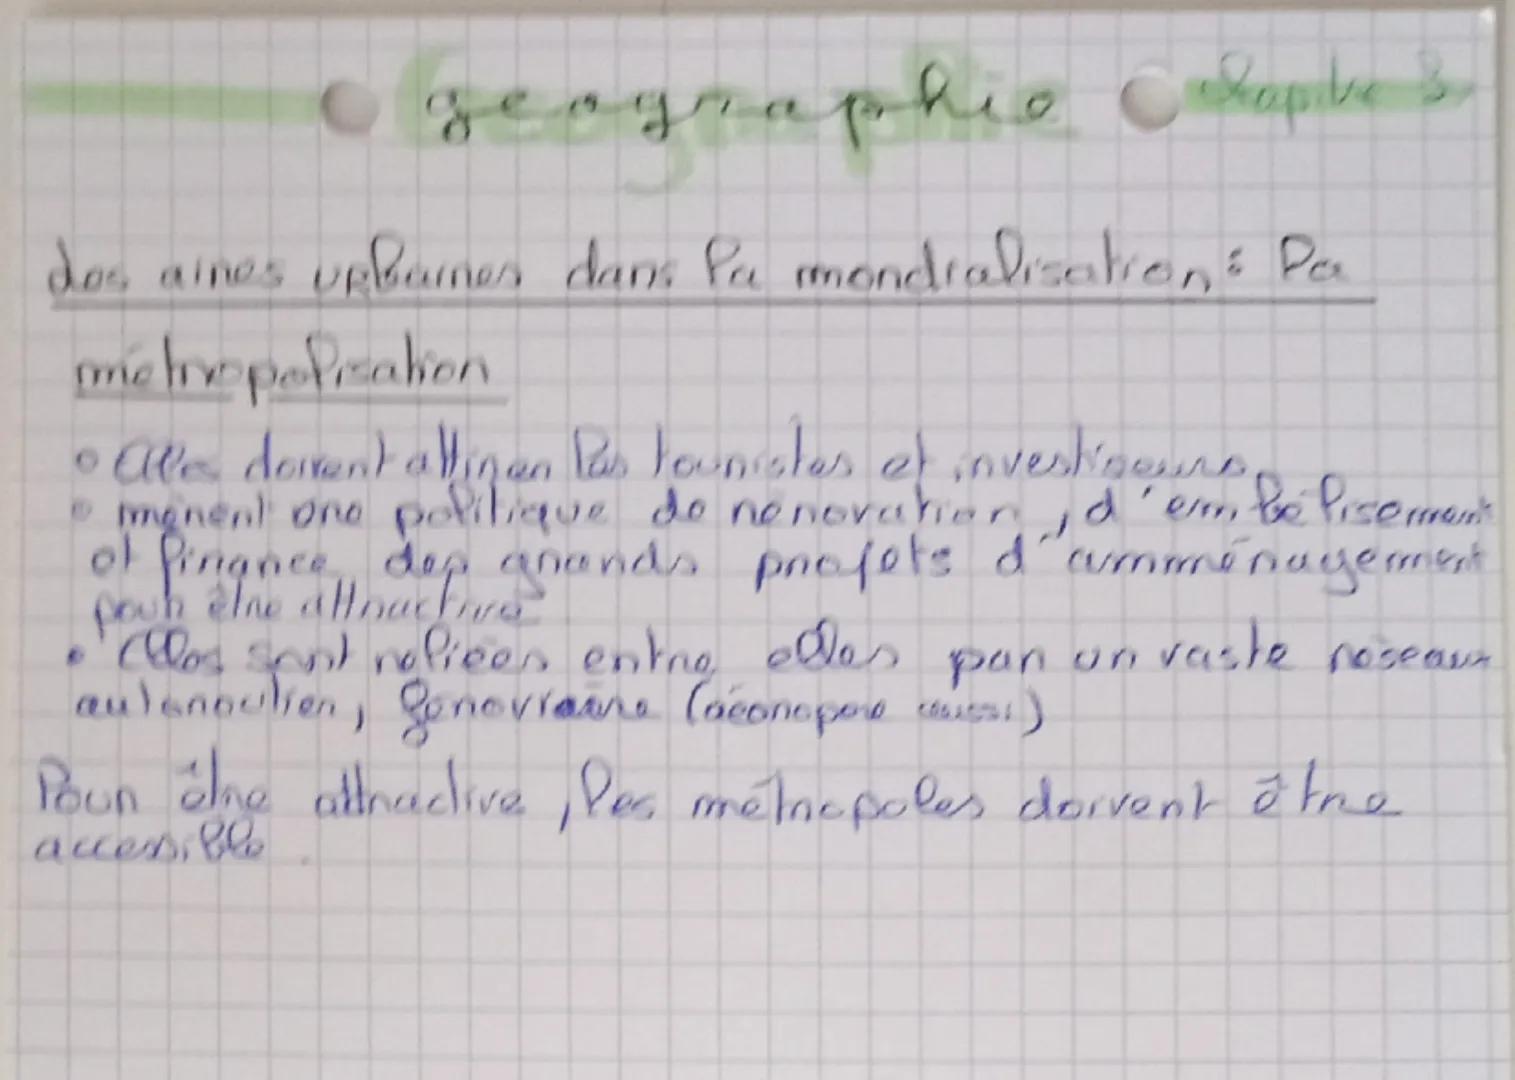 geographie chapitre 3
des aires urbaines dans la mondialisation : la
métropolisation
• elles doivent attirer les touristes et investiseurs
• mènent une politique de rénovation, d'embélisement
et finance des grands projets d'amménagement
pour être attractive
• elles sont reliées entre elles par un vaste réseaux
autoroutier, (aéroport aussi)
Pour être attractive, les métropoles doivent être
accessible.